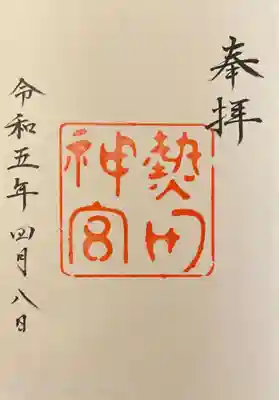 奉拝
熱田
神宮
令和五年 四月八日